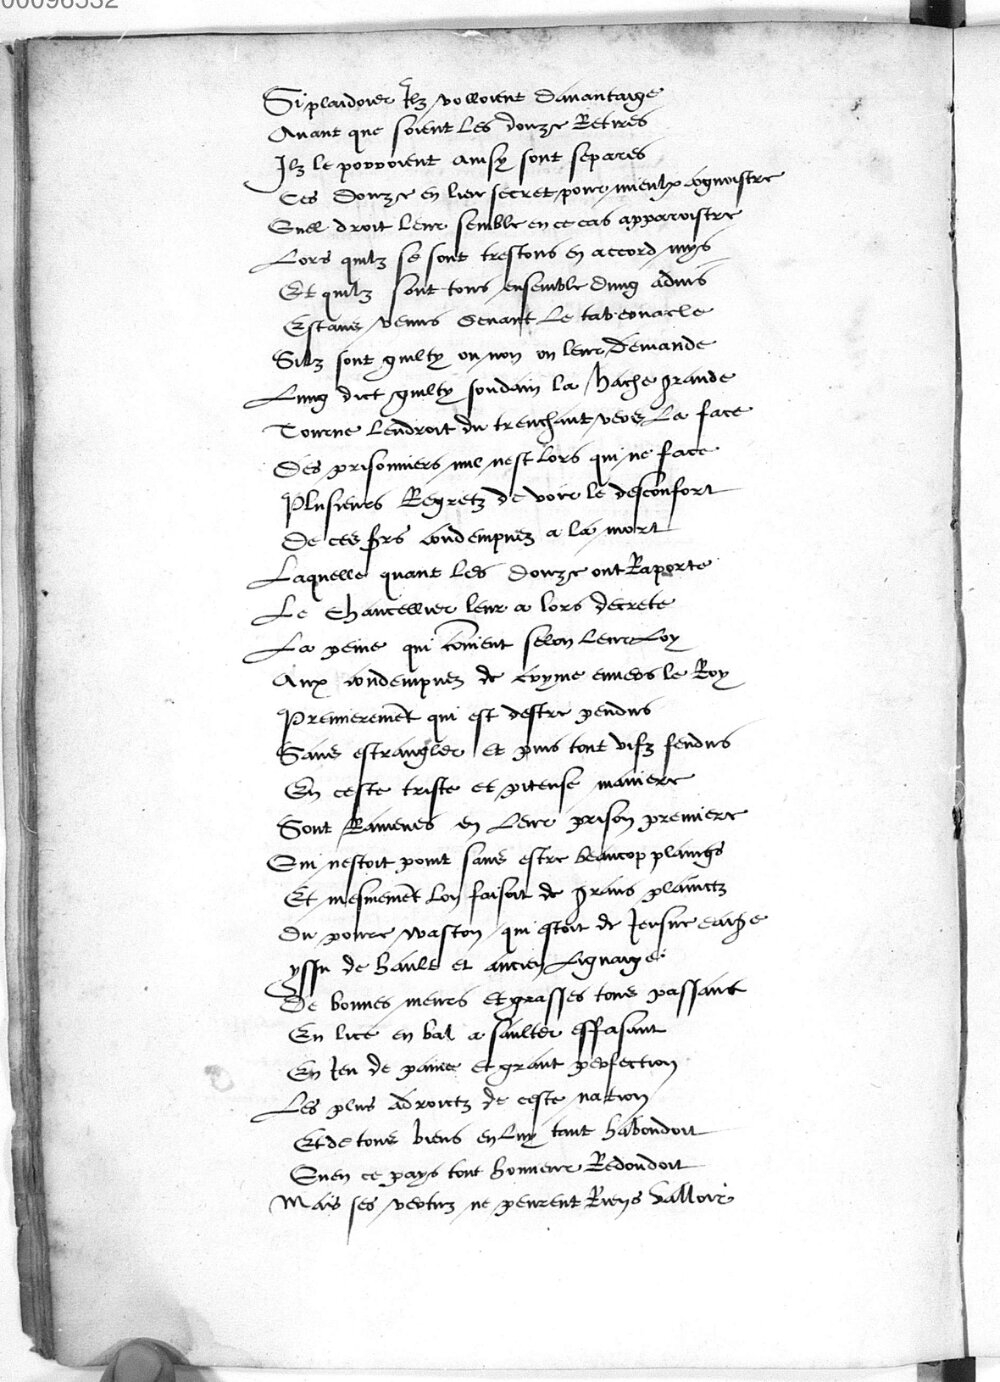 00096532
Si plaidoier Ilz volloient davantaige
Avant que soient les douze Retires
Ilz le povvoient ainsy sont separes
Ces douze en lieu secret pour mieulx cognoistre
Quel droit leur semble en ce cas apparoistre
Lors quilz se sont trestous en accord mys
Et quilz sont tous ensemble dung advis
Estans venus devant le tabernacle
Silz sont guilty ou non on leur demande
Lung dict guilty soudain la hache grande
Tourne lendroit du trenchant vers la face
Des prisonniers nul nest lors qui ne face
Plusieurs Regretz de voir le desconfort
De ces srs condempnez a la mort
Laquelle quant les douze ont Raporte
Le Chancellier leur a lors decrete
La peine qui convient selon leur Loy
Aux condempnez de cryme envers le Roy
Premierement qui est destre pendus
Sans estrangler et puis tout vifz fendus
En ceste triste et piteuse maniere
Sont Ramenes en leur prison premiere
Qui nestoit point sans estre beaucop plaings
Et mesmement lon faisoit de grans plainctz
Du povre waston qui estoit de Jeusne eaige
yssu de hault et ancien Lignaige
De bonnes meurs et grasses tous passant
En lice en bal a saulter effasant
En Jeu de paume et grant perfection
Les plus adroictz de ceste nation
Et de tous biens en luy tant habondoit
Quen ce pays tout honneur Redondoit
Mais ses vertuz ne peurent Riens valloir